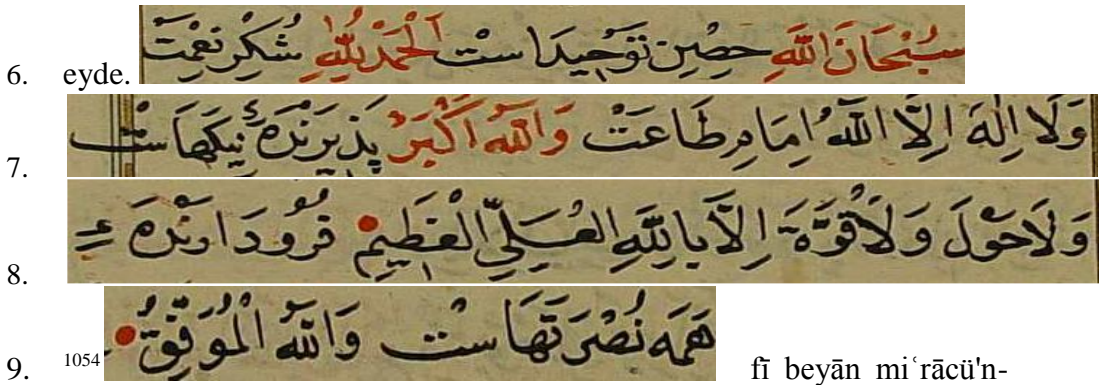 6. eyde. سُبْحَانَ اللّٰهِ حِصْنِ تَوْحِيدَاسْت اَلْحَمْدُ لِلّٰهِ شُكْرِ نِعْمَتْ
7. وَلَا اِلٰهَ اِلَّا اللّٰهُ اِمَامِ طَاعَتْ وَاللّٰهُ اَكْبَرْ پَذِيرَنْدَهٔ نِيكَهَاسْت
8. وَلَا حَوْلَ وَلَا قُوَّةَ اِلَّا بِاللّٰهِ الْعَلِيِّ الْعَظِيمِ فُرُودَارَنْدَهٔ
9. 1054 هَمَه نُصْرَتْهَاسْت وَاللّٰهُ الْمُوَفِّقُ fī beyān miʿrācü'n-